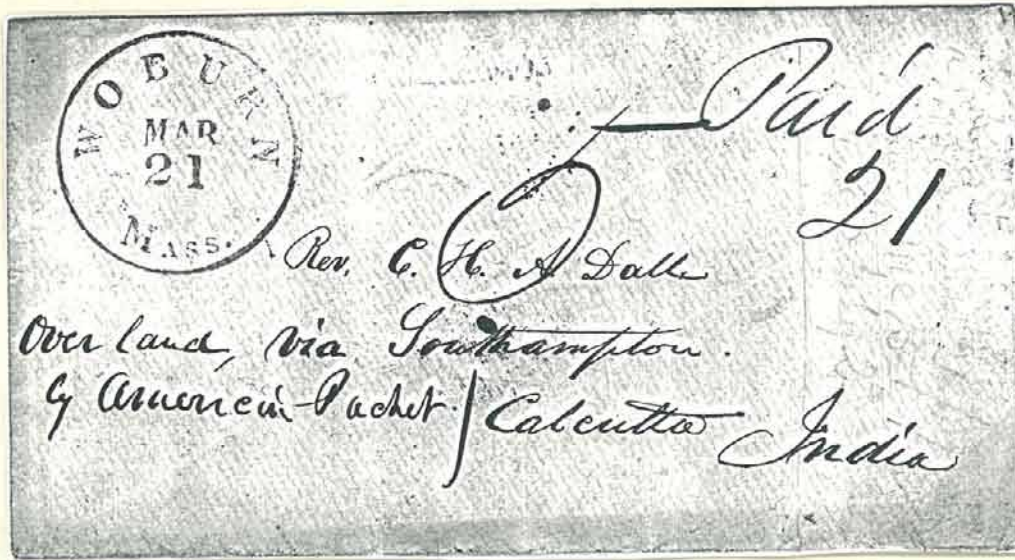 WOBURN
MAR
21
MASS.
Paid
21
Rev. C. H. A Dall
Over land, via Southampton.
by American Packet / Calcutta
India